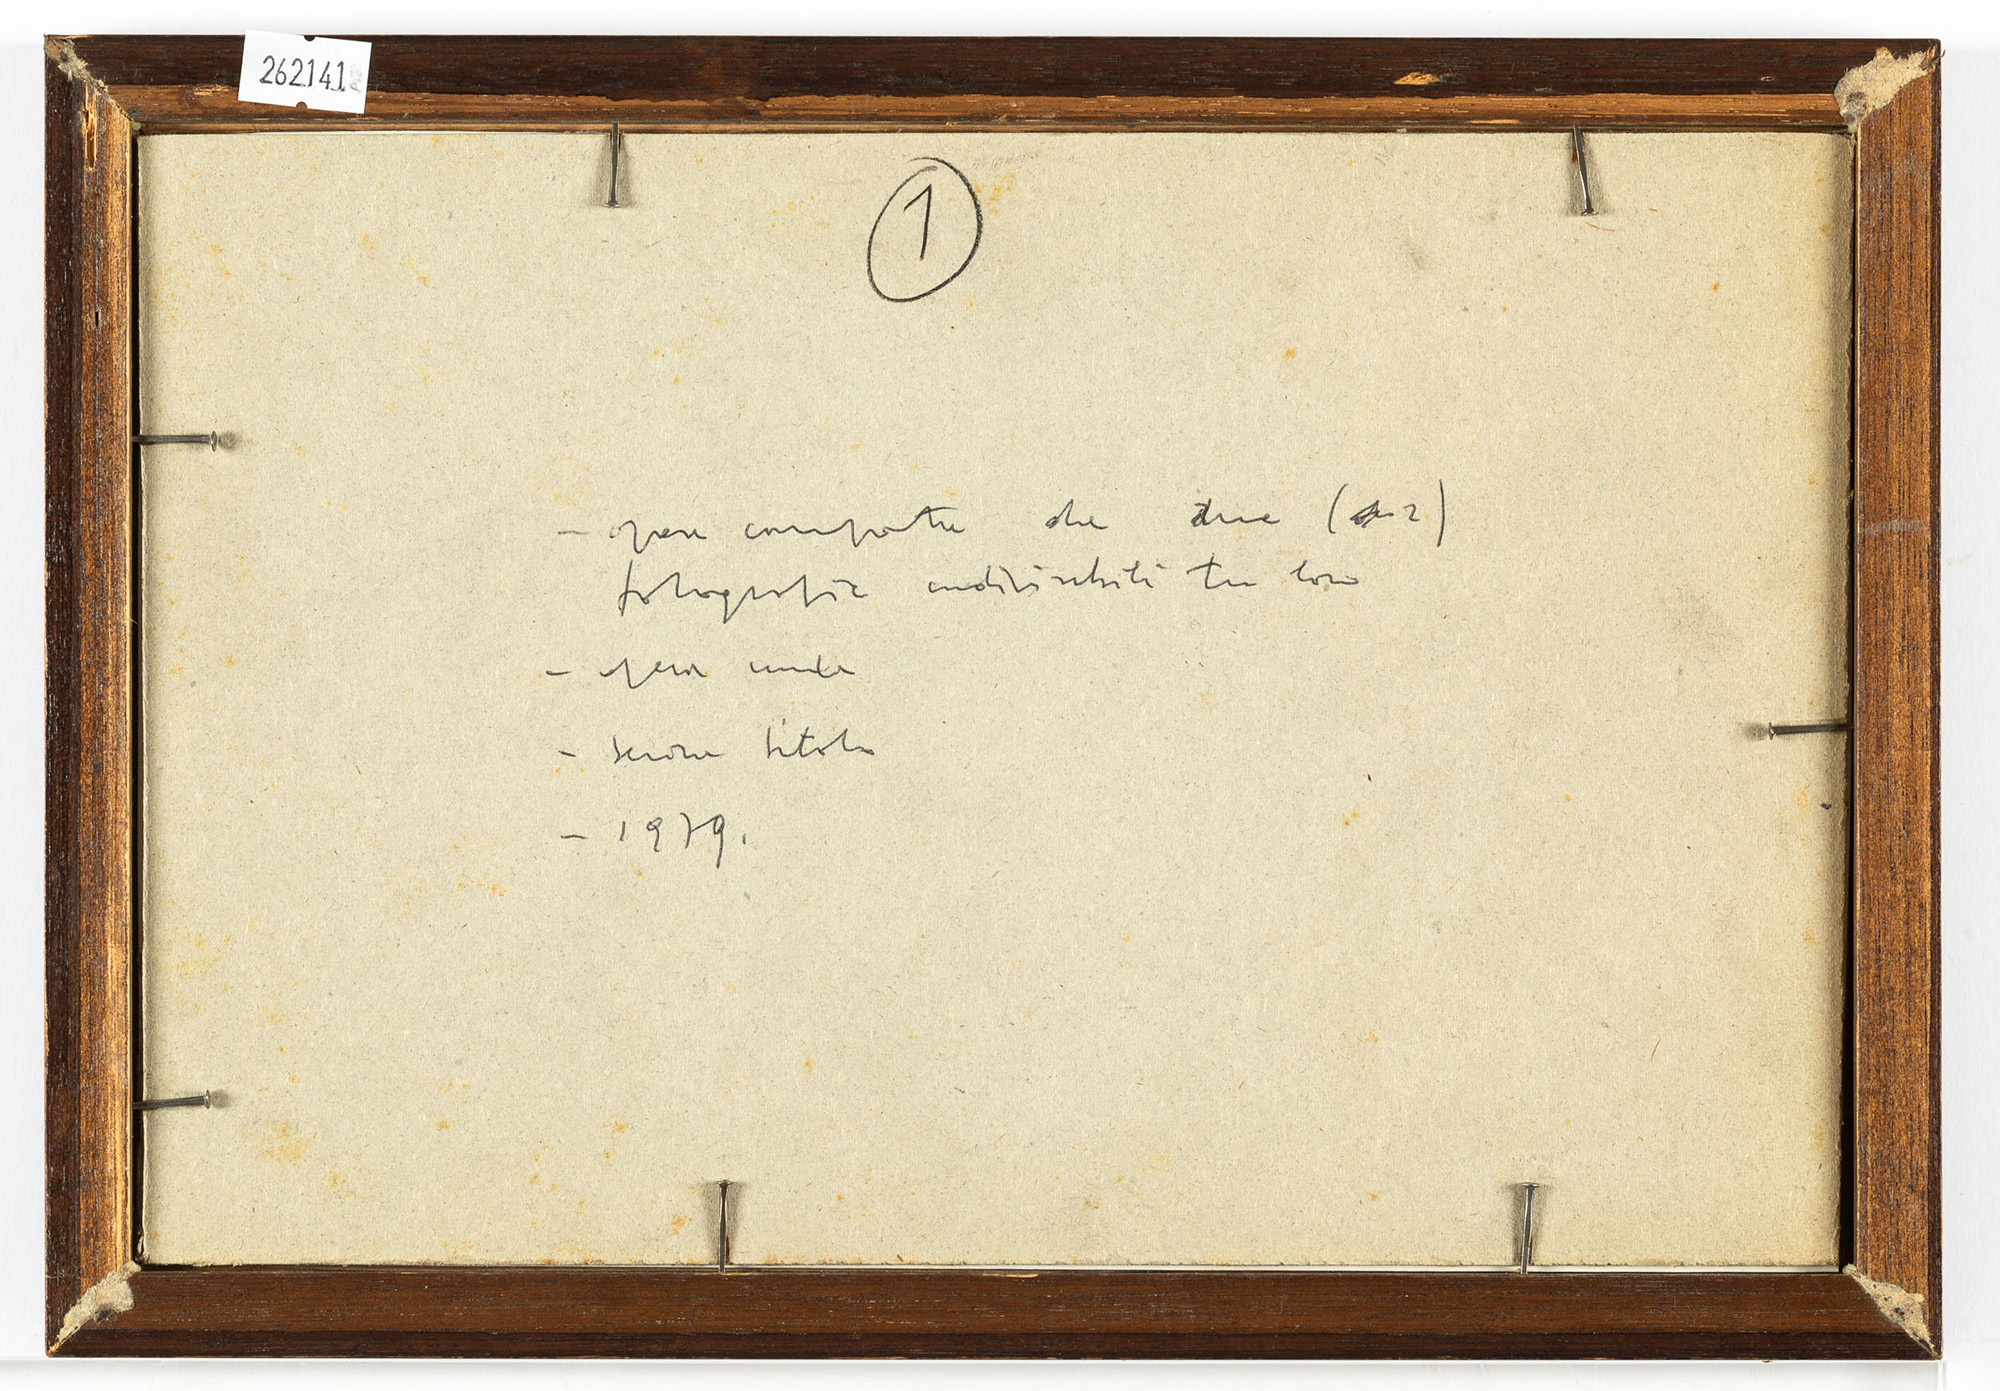 262141
1
- opera composta da due (2)
fotografie indivisibili tra loro
- opera unica
- senza titolo
- 1979.